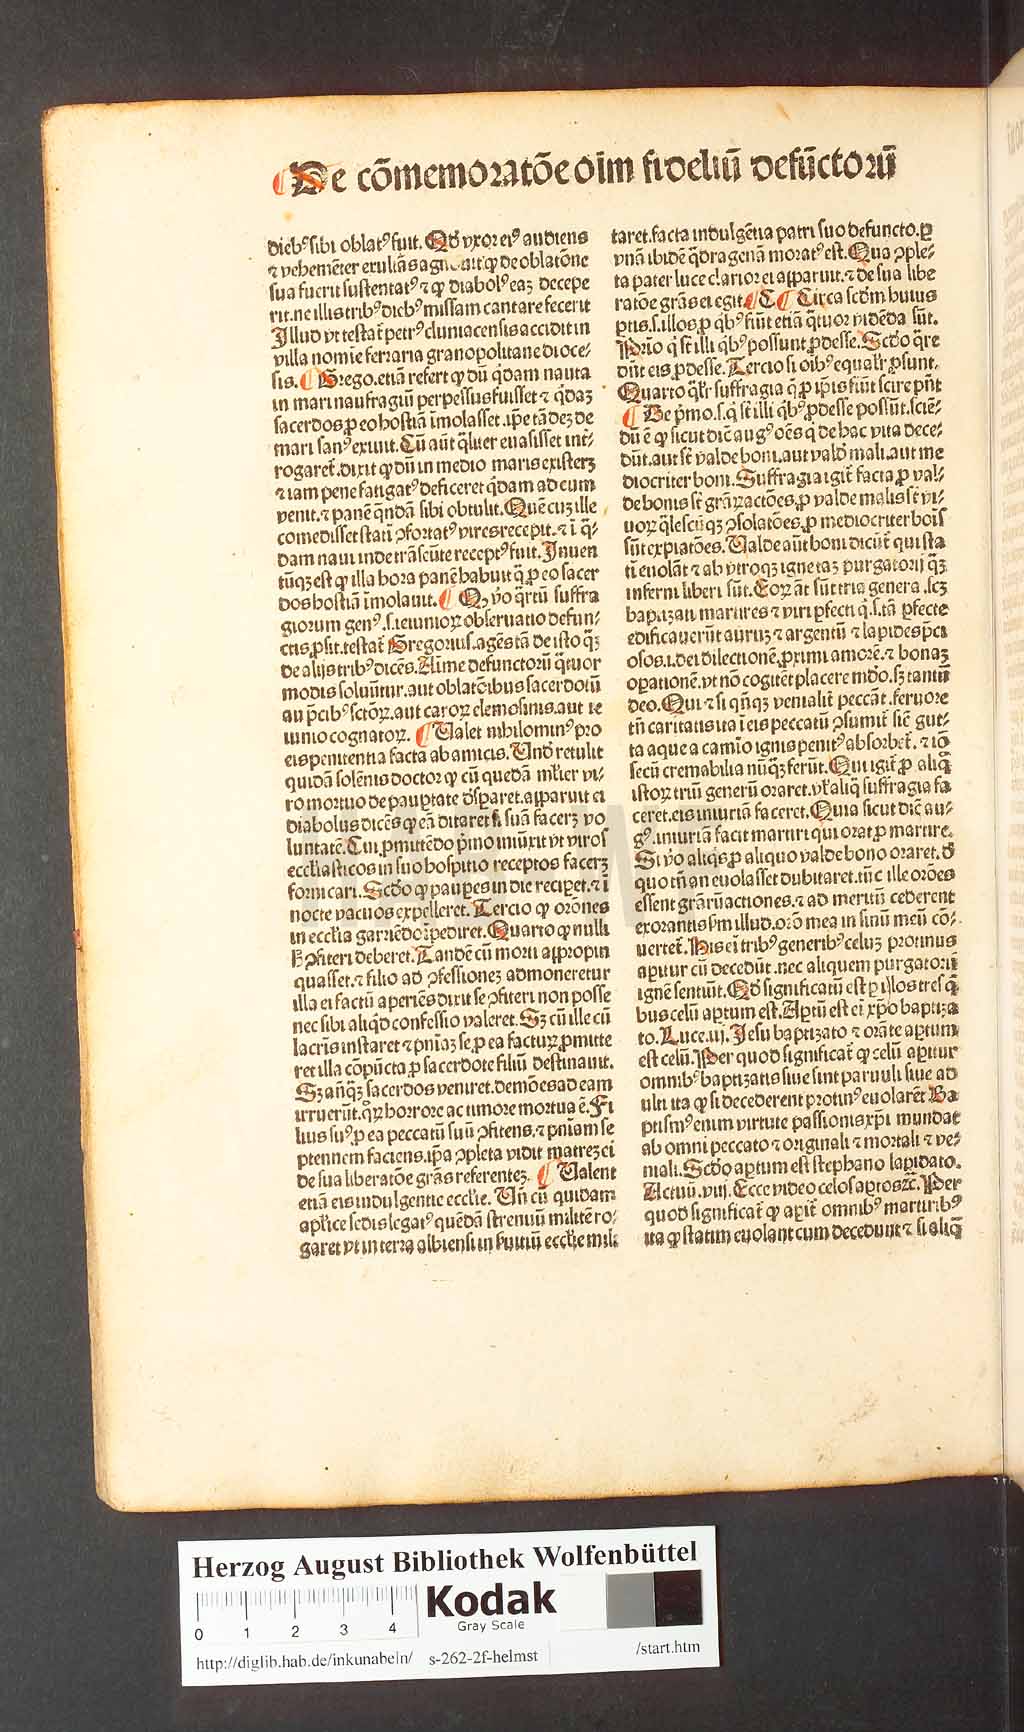 De cōmemoratōe oīm fideliū defūctorū
dieb⁹ sibi oblat⁹ fuit. Qd̄ vxor ei⁹ audiens
⁊ vehemēter exultās agnouit qꝙ de oblatōne
sua fuerit sustentat⁹ ⁊ ꝙ diabol⁹ eaꝫ decepe
rit. ne illis trib⁹ dieb⁹ missam cantare fecerit
Illud vt testat̄ petr⁹ cluniacensis accidit in
villa nomīe ferraria granopolitane dioce⸗
sis. Grego. etiā refert ꝙ dū q̄dam nauta
in mari naufragiū perpessus fuisset ⁊ q̄daꝫ
sacerdos ꝓ eo hostiā īmolasset. ip̄e tādeꝫ de
mari san⁹ exiuit. Cū aūt q̄liter euasisset int̄⸗
rogaret̄. dixit ꝙ dū in medio maris existerꝫ
⁊ iam pene fatigat⁹ deficeret q̄dam ad eum
venit. ⁊ panē q̄ndā sibi obtulit. Quē cuꝫ ille
comedisset statī ꝯfortat⁹ vires recepit. ⁊ ī q̄⸗
dam naui inde trāseūte recept⁹ fuit. Inuen
tūqꝫ est ꝙ illa hora panē habuit q̄ ꝓ eo sacer
dos hostiā īmolauit. Qꝫ v̄o q̄rtū suffra
giorum gen⁹. s. ieiunioꝝ obseruatio defun⸗
ctis ꝓsit. testat̄ Gregorius. agēs tā de isto qꝫ
de alijs trib⁹ dicēs. Aīme defunctorū q̄tuor
modis soluūtur. aut oblatōibus sacerdotū
au p̄cib⁹ sctōꝝ. aut caroꝝ elemosinis. aut ie
iunio cognatoꝝ. Ualet nihilomin⁹ pro
eis penitentia facta ab amicis. Und̄ retulit
quidā solēnis doctor ꝙ cū quedā ml̄ier vi⸗
ro mortuo de paupertate d̄speraret. apparuit ei
diabolus dicēs ꝙ eā ditaret si suā facerꝫ vo
luntatē. Cui ꝓmittēdo p̄imo iniūxit vt viros
eccl̄iasticos in suo hospitio receptos facerꝫ
fornicari. Scd̄o ꝙ paupes in die reciꝑet. ⁊ ī
nocte vacuos expelleret. Tercio ꝙ orōnes
in eccl̄ia garriēdo īpediret. Quarto ꝙ nulli
h̄ ꝯfiteri deberet. Tandē cū morti appropin
quasset. ⁊ filio ad ꝯfessioneꝫ admoneretur
illa ei factū aperiēs dixit se ꝯfiteri non posse
nec sibi aliqd̄ confessio valeret. Sꝫ cū ille cū
lacrīs instaret ⁊ pn̄iaꝫ se ꝓ ea facturꝝ ꝓmitte
ret illa cōpūcta ꝓ sacerdote filiū destinauit.
Sꝫ anq̄ꝫ sacerdos veniret. demōes ad eam
irruerūt. qꝝ horrore ac timore mortua ē. Fi
lius su⁹ ꝓ ea peccatū suū ꝯfitens. ⁊ pn̄iam se
ptennem faciens. ip̄a ꝯpleta vidit matreꝫ ei
de sua liberatōe grās referenteꝫ. Ualent
etiā eis indulgentie eccl̄ie. Un̄ cū quidam
apl̄ice sedis legat⁹ quēdā strenuū militē ro⸗
garet vt in terra albiensi in seruitiū eccl̄ie mili
taret. facta indulgētia patri suo defuncto. ꝑ
vnā ibidē q̄dragenā morat⁹ est. Qua ꝯple⸗
ta pater luce clarior ei apparuit. ⁊ de sua libe
ratōe grās ei egit. Circa scd̄m huius
ptis. s. illos ꝓ qb⁹ fiūt etiā q̄tuor vidēda sūt.
Prīo qͥ st̄ illi qb⁹ possunt ꝓdesse. Scd̄o q̄re
dn̄t eis ꝓdesse. Tercio si oīb⁹ equalr̄ ꝓsunt.
Quarto q̄lr̄ suffragia q̄ ꝓ ip̄is fiūt scire pn̄t
De p̄mo. s. qͥ st̄ illi qb⁹ ꝓdesse possūt. sciē⸗
dū ē ꝙ sicut dic̄ aug⁹ oēs qͥ de hac vita dece⸗
dūt. aut st̄ valde boni. aut vald̄ mali. aut me
diocriter boni. Suffragia igit̄ facta ꝓ val⸗
de bonis st̄ grāꝝ actōes. ꝓ valde malis st̄ vi⸗
uoꝝ q̄lescūqꝫ ꝯsolatōes. ꝓ mediocriter bois
sūt expiatōes. Ualde aūt boni dicūt̄ qui sta
tī euolāt ⁊ ab vtroqꝫ igne taꝫ purgatorij qꝫ
inferni liberi sūt. Eoꝝ āt sūt tria genera. scꝫ
baptizati martires ⁊ viri ꝑfecti qͥ. s. tā ꝑfecte
edificauerūt auruꝫ ⁊ argentū ⁊ lapides p̄ci
osos. i. dei dilectionē. ꝓximi amorē. ⁊ bonaꝫ
oꝑationē. vt nō cogitēt placere mūdo. sꝫ tantū
deo. Qui ⁊ si qn̄qꝫ venialit̄ peccāt. feruore
tn̄ caritatis ita ī eis peccatū ꝯsumit̄ sic̄ gut⸗
ta aque a camīo ignis penit⁹ absorbet̄. ⁊ iō
secū cremabilia nūqꝫ ferūt. Qui igit̄ ꝓ aliqͦ
istoꝝ triū generū oraret. vl̄ aliq̄ suffragia fa
ceret. eis iniuriā faceret. Quia sicut dic̄ au⸗
g⁹. iniuriā facit martiri qui orat ꝓ martire.
Si v̄o aliqs ꝓ aliquo valde bono oraret. d̄
quo tn̄ an euolasset dubitaret. tūc ille orōes
essent grārū actiones. ⁊ ad meritū cederent
exorantis s̄m illud. orō mea in sinū meū cō⸗
uertet̄. His eī trib⁹ generib⁹ celuꝫ protinus
aꝑitur cū decedūt. nec aliquem purgatorij
ignē sentiūt. Qd̄ significatū est ꝑ illos tres qͥ
bus celū aꝑtum est. Aꝑtū est eī xp̄o baptiza
to. Luce. iij. Jesu baptizato ⁊ orāte aꝑtum
est celū. Per quod significat̄ ꝙ celū aꝑitur
omnib⁹ baptizatis siue sint paruuli siue ad
ulti ita ꝙ si decederent protin⁹ euolarēt Ba
ptism⁹ enim virtute passionis xp̄i mundat
ab omni peccato ⁊ originali ⁊ mortali ⁊ ve⸗
niali. Scd̄o aꝑtum est stephano lapidato.
Actuū. viij. Ecce video celos aꝑtos ꝛc̄. Per
quod significat̄ ꝙ aꝑit̄ omnib⁹ martirib⁹
ita ꝙ statim euolant cum decedunt ⁊ si aliqͥ
Herzog August Bibliothek Wolfenbüttel
0 1 2 3 4
Kodak
Gray Scale
http://diglib.hab.de/inkunabeln/ s-262-2f-helmst /start.htm